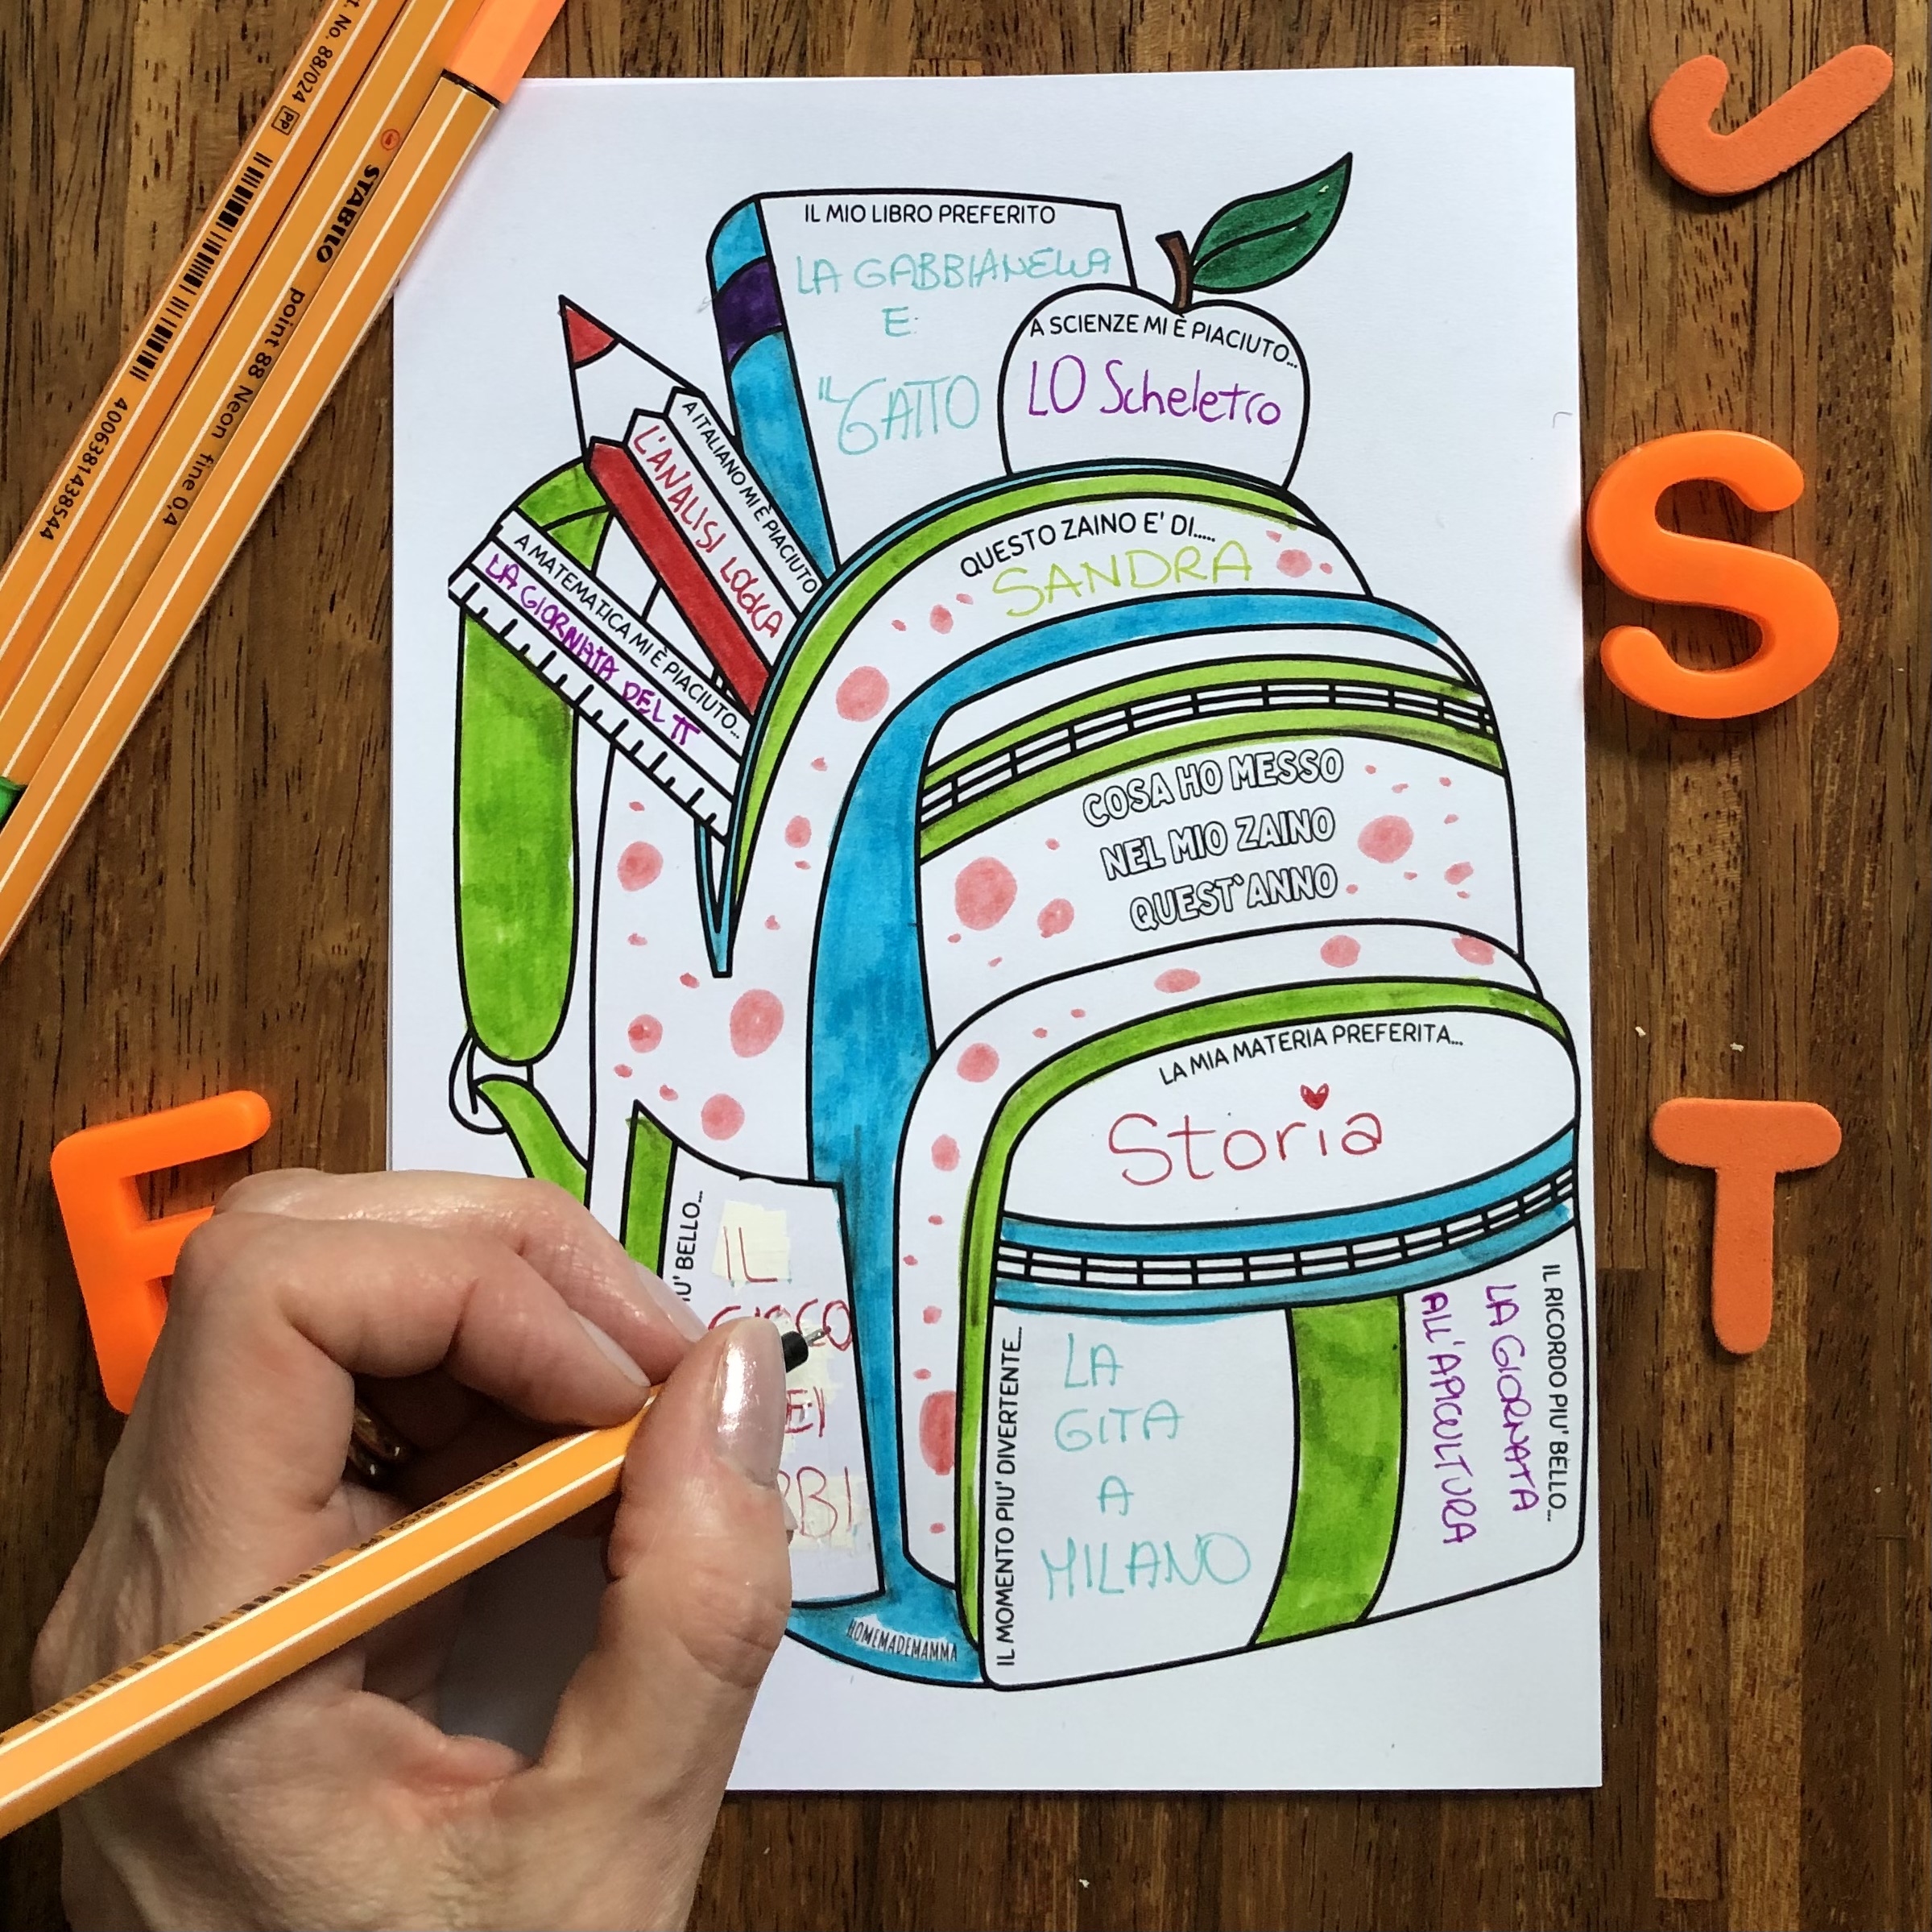 t. No. 88/024 PP
STABILO point 88 Neon fine 0,4
4006381438544
IL MIO LIBRO PREFERITO
LA GABBIANELLA
E
IL GATTO
A SCIENZE MI È PIACIUTO...
LO Scheletro
A ITALIANO MI È PIACIUTO
L'ANALISI LOGICA
A MATEMATICA MI È PIACIUTO...
LA GIORNATA DEL π
QUESTO ZAINO E' DI.....
SANDRA
COSA HO MESSO
NEL MIO ZAINO
QUEST'ANNO
LA MIA MATERIA PREFERITA...
Storia
U' BELLO...
IL
GIOCO
EI
BBI
IL MOMENTO PIU' DIVERTENTE...
LA
GITA
A
MILANO
IL RICORDO PIU' BELLO...
LA GIORNATA
ALL'APICULTURA
HOMEMADEMAMMA
S
E
T